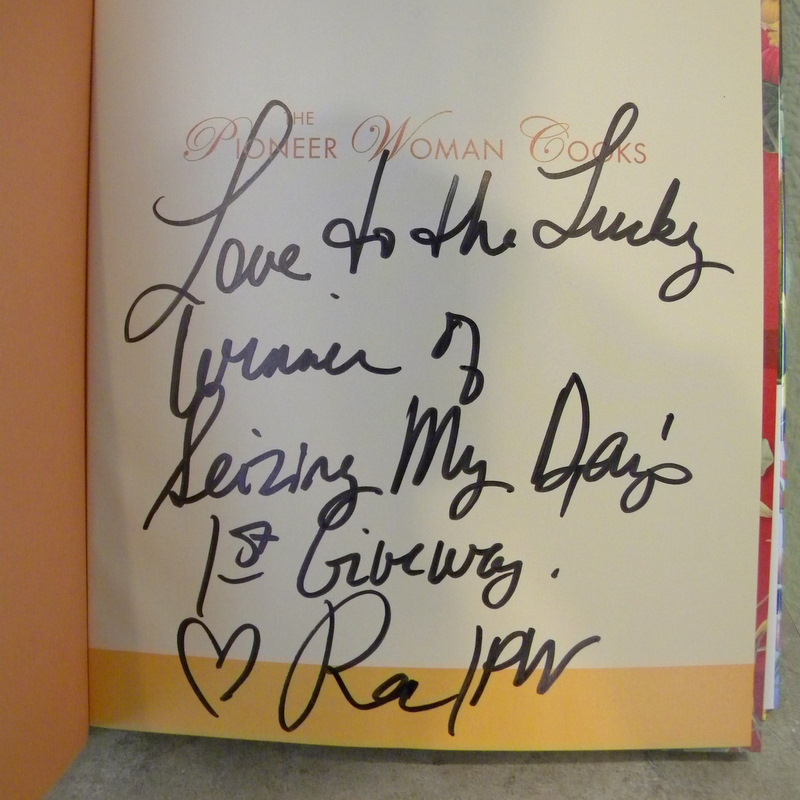 THE
PIONEER WOMAN COOKS
Love to the Lucky
Winner of
Seizing My Day's
1st Giveway.
♡ PW